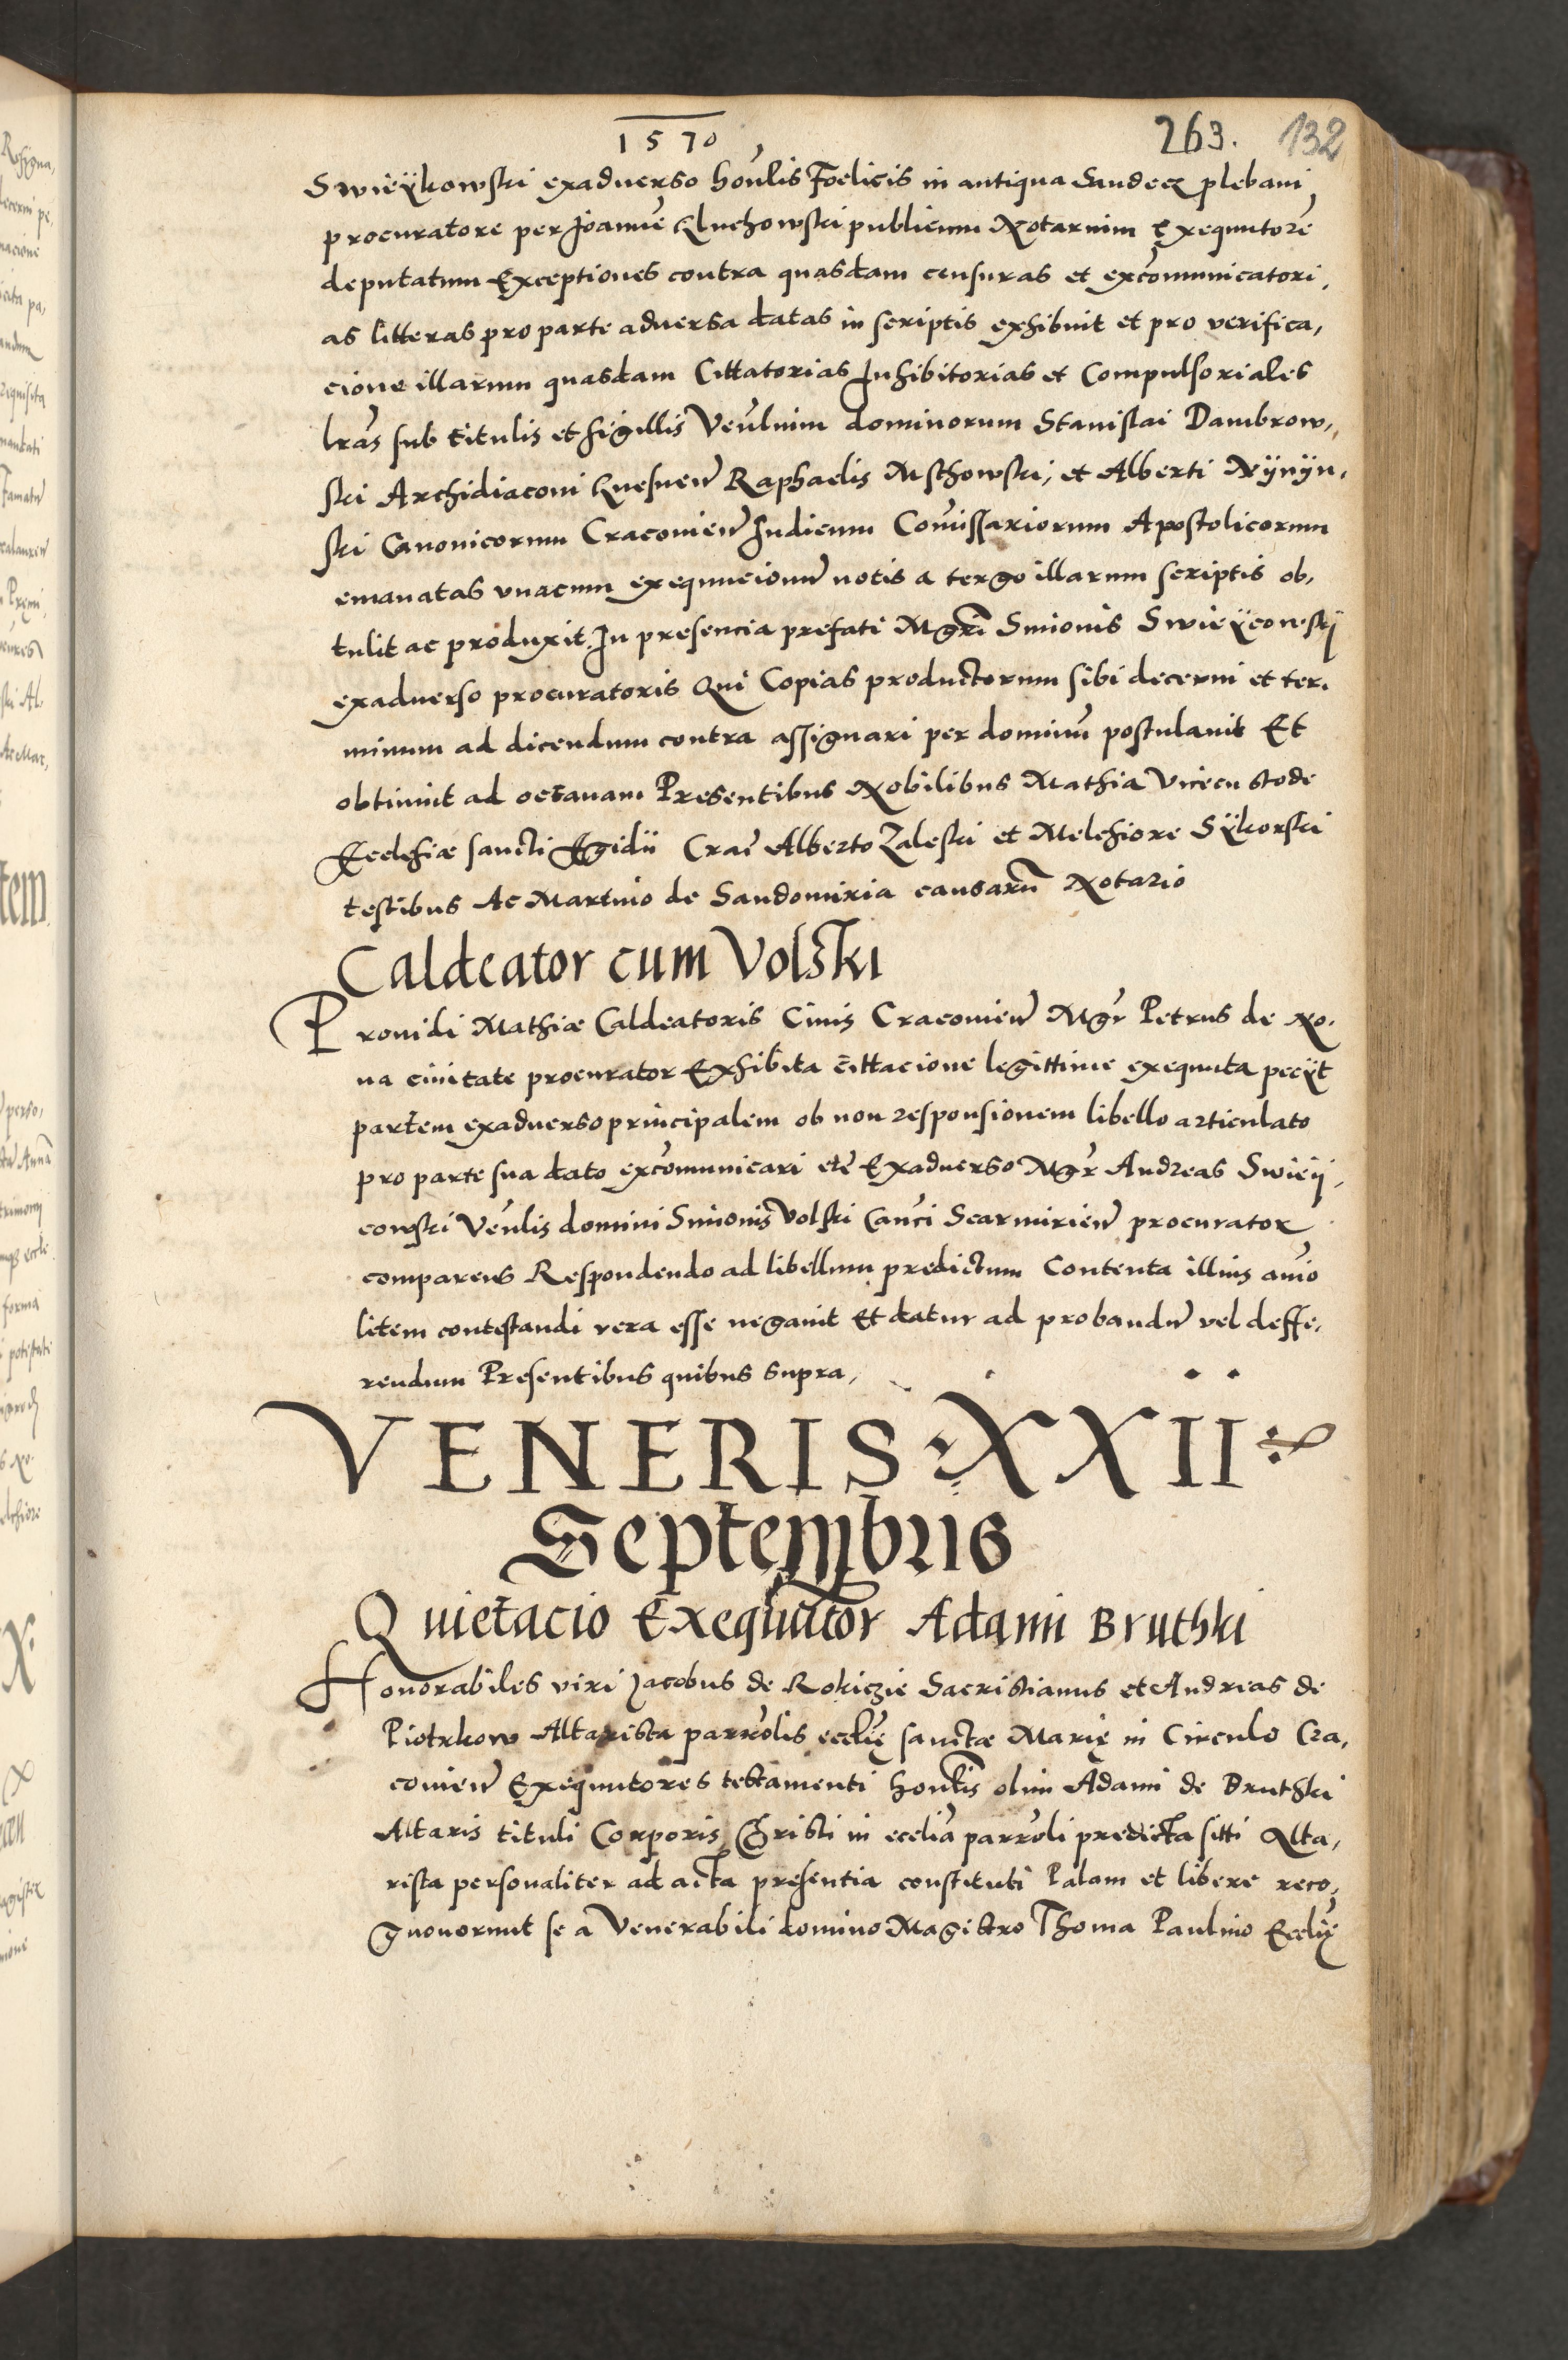 1570
263. 132
Swieÿkowski exaduerso honlis Foelicis in antiqua Sandecz plebani
procuratore per Joannē Kluchowski publicum Notarium Exequutorē
deputatum Exceptiones contra quasdam censuras et excōmunicatori,
as litteras pro parte aduersa datas in scriptis exhibuit et pro verifica,
cione illarum quasdam Cittatorias Inhibitorias et Compulsoriales
lrās sub titulis et sigillis Venlium dominorum Stanislai Dambrow,,
ski Archidiaconi Gnesnen Raphaelis Wschowski, et Alberti Nÿnÿn,
ski Canonicorum Cracouien Iudicum Comissariorum Apostolicorum
emanatas vnacum exequucionum notis a tergo illarum scriptis ob,
tulit ac produxit. In presencia prefati Mgrī Simonis Swieÿcowskÿ
exaduerso procuratoris Qui Copias productorum sibi decerni et ter,
minum ad dicendum contra assignari per dominū postulauit Et
obtinuit ad octauam Presentibus Nobilibus Mathia Vicecustode
Ecclesiæ sancti Egidii Crac Alberto Zaleski et Melchiore Sÿkorski
testibus Ac Martino de Sandomiria causarū Notario
Caldeator cum Volski
Prouidi Mathiæ Caldeatoris Ciuis Cracouien Mgr Petrus de No,
ua ciuitate procurator Exhibita cittacione legittime exequuta peciÿt
partem exaduerso principalem ob non responsionem libello articulato
pro parte sua dato excōmunicari etc Exaduerso Mgr Andreas Swieÿ,
cowski Venlis domini Simonis Volski Canci Scarmirien procurator
comparens Respondendo ad libellum predictum Contenta illius anīo
litem contestandi vera esse negauit Et datur ad probandū vel deffe,
rendum Presentibus quibus supra,
VENERIS XXII
Septembris
Quietacio Exequutor Adami Bruthki
Honorabiles viri Jacobus de Rokiczie Sacristianus et Andreas de
Piotrkow Altarista parrolis ecclię sanctæ Marię in Circulo Cra,
couien Exequutores testamenti honlis olim Adami de Bruthki
Altaris tituli Corporis Christi in ecclia parroli predicta sitti Alta,
rista personaliter ad acta presentia constituti Palam et libere reco,
gnouerunt se a Venerabili domino Magistro Thoma Paulino Ecclię